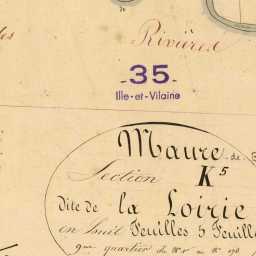 de
Rivières
-35-
Ille-et-Vilaine
Maure de
Section K⁵
Dite de la Loirie
en huit Feuilles 5 Feuill
quartier du N° au N°